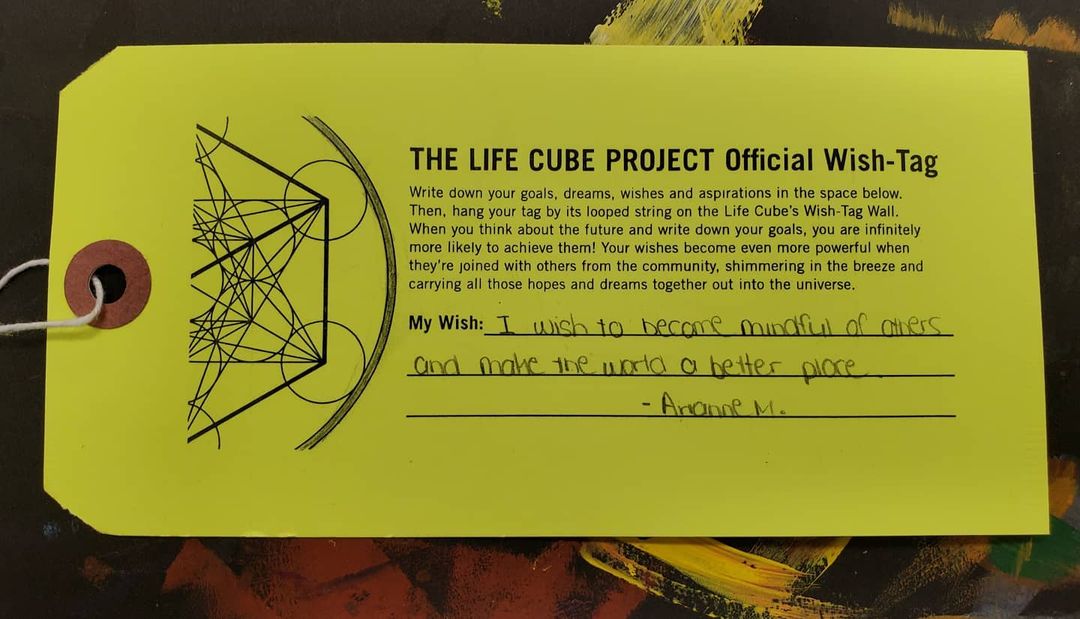 THE LIFE CUBE PROJECT Official Wish-Tag
Write down your goals, dreams, wishes and aspirations in the space below.
Then, hang your tag by its looped string on the Life Cube's Wish-Tag Wall.
When you think about the future and write down your goals, you are infinitely
more likely to achieve them! Your wishes become even more powerful when
they're joined with others from the community, shimmering in the breeze and
carrying all those hopes and dreams together out into the universe.
My Wish: I wish to become mindful of others
and make the world a better place.
- Arianne M.